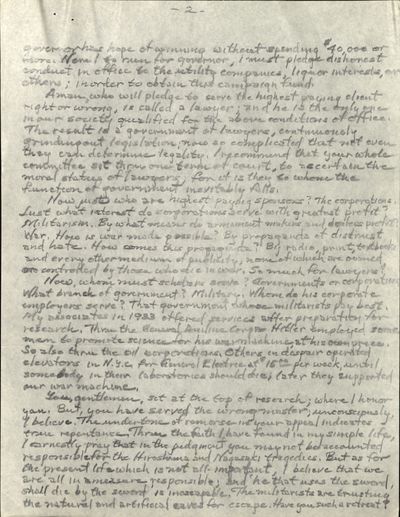 - 2 -
governor has hope of winning without spending $40,000 or
more. Were I to run for governor, I must pledge dishonest
conduct in office to the utility companies, liquor interests, or
others; in order to obtain this campaign fund.
A man who will pledge to serve the highest paying client
right or wrong, is called a lawyer; and he is the only one
in our society qualified for the above conditions of office.
The result is a government of lawyers, continuously
grinding out legislation; now so complicated that not even
they can determine legality. I recommend that your whole
committee sit thru one term of court, to ascertain the
moral status of lawyers; for it is they to whom the
function of government inevitably falls.
Now just who are highest paying sponsors? The corporations.
Just what interest do corporations serve with greatest profit?
Militarism. By what means do armament makers and dealers profit?
War. How is war made possible? By propaganda of distrust
and hate. How comes this propaganda? By radio, print, textbooks
and every other medium of publicity; none of which are owned
or controlled by those who die in war. So much for lawyers!
Now, whom must scholars serve? Governments or corporations.
What branch of government? Military. Whom do his corporate
employers serve? That government whose militarists pay best.
My associates in 1933 offered services after preparation for
research. Thru the General Aniline Corp. Hitler employed some
men to promote science for his war machine, at his own price.
So also thru the oil corporations. Others, in despair operated
elevators in N.Y.C. for General Electric at 15 per week, until
somebody in their laboratories should die; later they supported
our war machine.
You, gentlemen, sit at the top of research; where I honor
you. But, you have served the wrong master; unconsciously,
I believe. The undertone of remorse in your appeal indicates
true repentance. Thru the faith I have found in my simple life,
I earnestly pray that in the judgment you may not be accounted
responsible for the Hiroshima and Nagasaki tragedies. But as for
the present life which is not all-important, I believe that we
are all in a measure responsible; and he that uses the sword,
shall die by the sword is inescapable. The militarists are trusting
the natural and artificial caves for escape. Have you such a retreat?